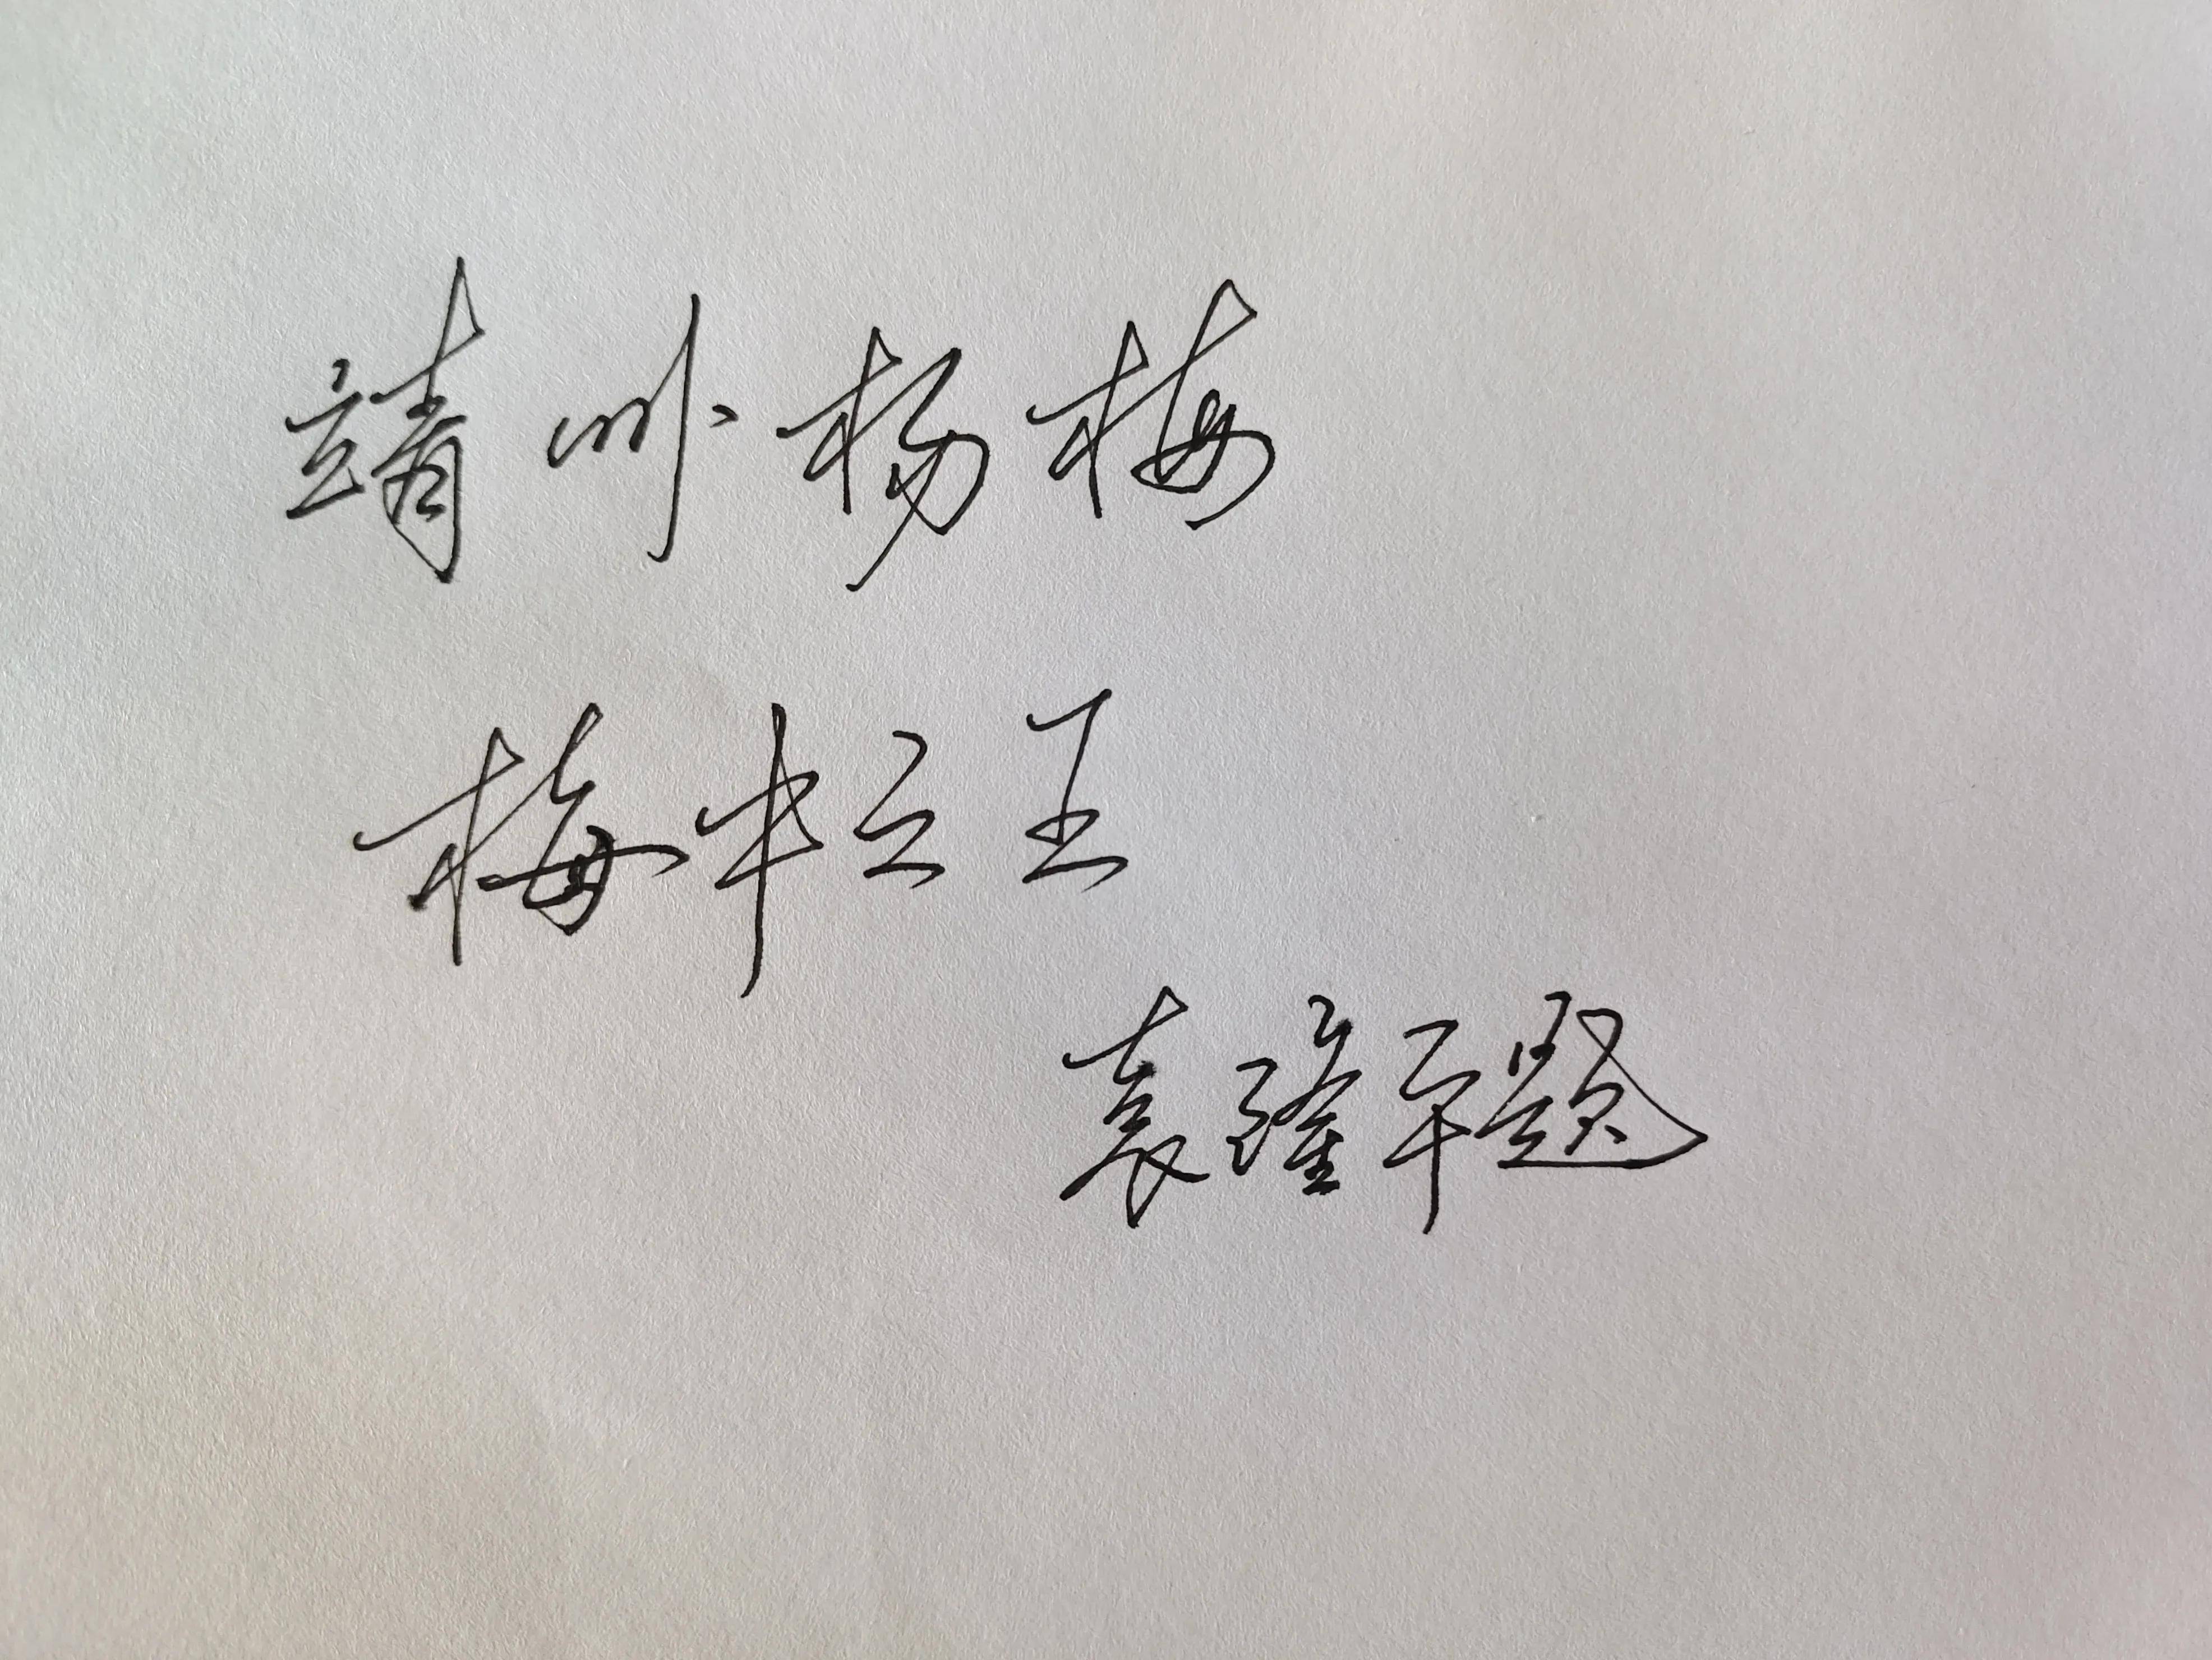 靖州杨梅
梅中之王
袁隆平题